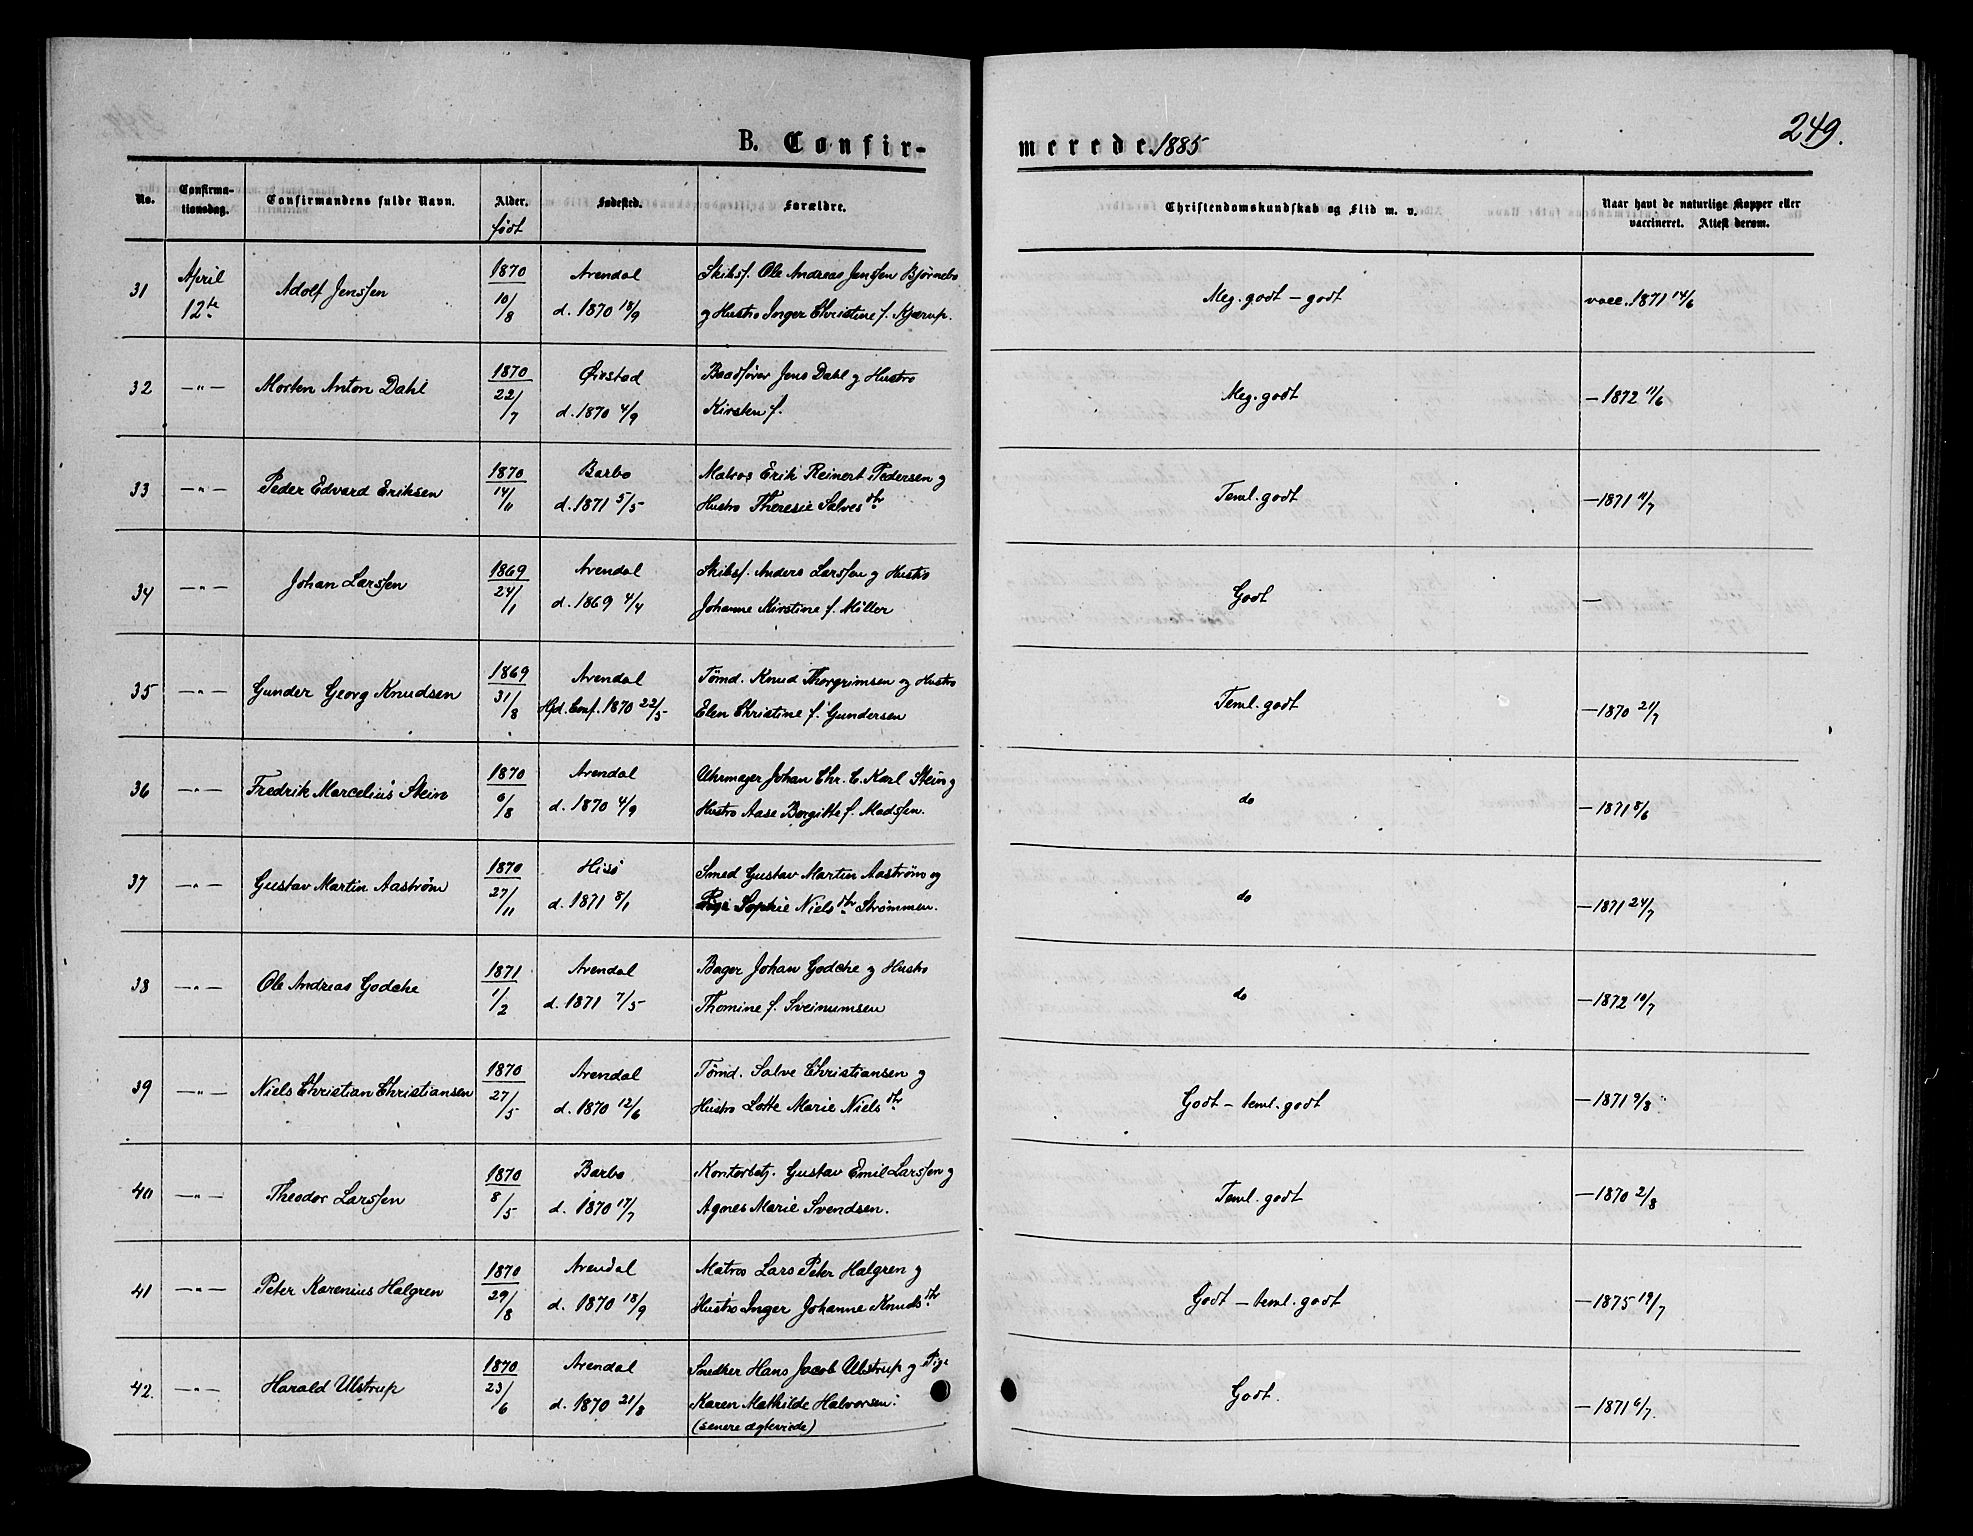 249.
B. Confir- merede 1885
No. Confirma-tionsdag. Confirmandens fulde Navn. Alder. født Fødested. Forældre. Christendomskundskab og Flid m. v. Naar havt de naturlige Kopper eller vaccineret. Attest derom.
31 April 12te Adolf Jenssen 1870 10/8 Arendal d. 1870 18/9 Skibsf. Ole Andreas Jenssen Bjørnebo
og Hustro Inger Christine f. Kjærup. Meg. godt - godt vacc. 1871 14/6
32 —"— Morten Anton Dahl 1870 22/7 Øiestad d. 1870 4/9 Baadfører Jens Dahl og Hustro
Kirsten f. Meg. godt — 1872 11/6
33 —"— Peder Edvard Eriksen 1870 14/11 Barbo d. 1871 5/5 Matros Erik Reinert Pedersen og
Hustro Theresie Salvesdtr Teml. godt — 1871 11/7
34 —"— Johan Larssen 1869 24/1 Arendal d. 1869 4/4 Skibsf. Anders Larssen og Hustro
Johanne Kirstine f. Miller Godt —
35 —"— Gunder Georg Knudsen 1869 31/8 Arendal Hjd. Conf. 1870 22/5 Tømd. Knud Thorgrimsen og Hustro
Elen Christine f. Gundersen Teml. godt — 1870 21/7
36 —"— Fredrik Marcelius Stein 1870 6/8 Arendal d. 1870 4/9 Uhrmager Johan Chr. C. Karl Stein og
Hustro Aase Borgitte f. Madssen. do — 1871 8/6
37 —"— Gustav Martin Aastrøm 1870 27/11 Hisø d. 1871 8/1 Smed Gustav Martin Aastrøm og
Pige Sophie Nielsdtr Strømmen. do — 1871 24/7
38 —"— Ole Andreas Godche 1871 1/2 Arendal d. 1871 7/5 Bager Johan Godche og Hustro
Thomine f. Sveinumsen do — 1872 10/7
39 —"— Niels Christian Christiansen 1870 27/5 Arendal d. 1870 12/6 Tømd. Salve Christiansen og
Hustro Lotte Marie Nielsdtr Godt - teml. godt — 1871 9/8
40 —"— Theodor Larssen 1870 8/5 Barbo d. 1870 17/7 Kontorbetj. Gustav Emil Larssen og
Agnes Marie Svendsen. Teml. godt — 1870 2/8
41 —"— Peter Karenius Halgren 1870 29/8 Arendal d. 1870 18/9 Matros Lars Peter Halgren og
Hustro Inger Johanne Knudsdtr Godt - teml. godt — 1875 19/7
42. —"— Harald Ulstrup 1870 23/6 Arendal d. 1870 21/8 Snedker Hans Jacob Ulstrup og Pige
Karen Mathilde Halvorsen
(senere ægteviede) Godt. — 1871 6/7.